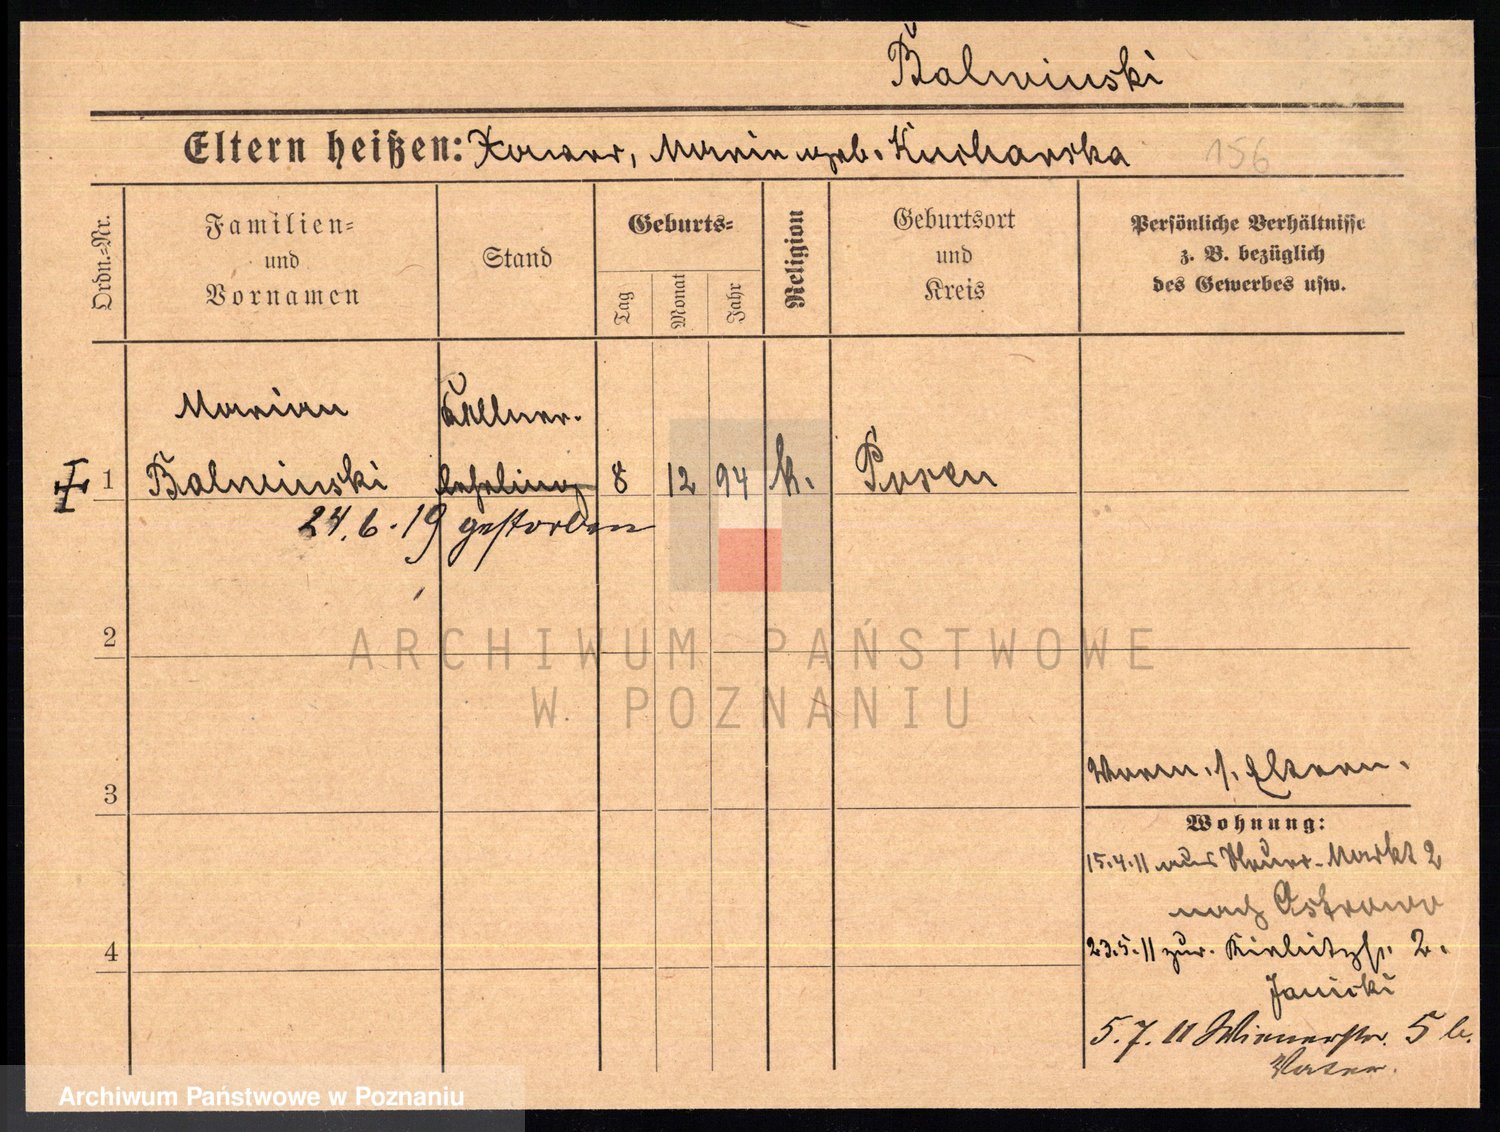 Balwinski
Eltern heißen: Xaver, Marie geb. Kucharska
156
Ordn.=Nr.
Familien=
und
Vornamen
Stand
Geburts=
Tag
Monat
Jahr
Religion
Geburtsort
und
Kreis
Persönliche Verhältnisse
z. B. bezüglich
des Gewerbes usw.
Marian Kellner-
1 Balwinski lehrling 8 12 94 k. Posen
24.6.19 gestorben
2
ARCHIWUM PAŃSTWOWE
W POZNANIU
Vorm. s. Eltern.
3
Wohnung:
15.4.11 aus Neuer-Markt 2
nach Ostrowo
23.5.11 zur. 2.
4
Janicki
5.7.11 Wienerstr. 5 b.
Vater.
Archiwum Państwowe w Poznaniu